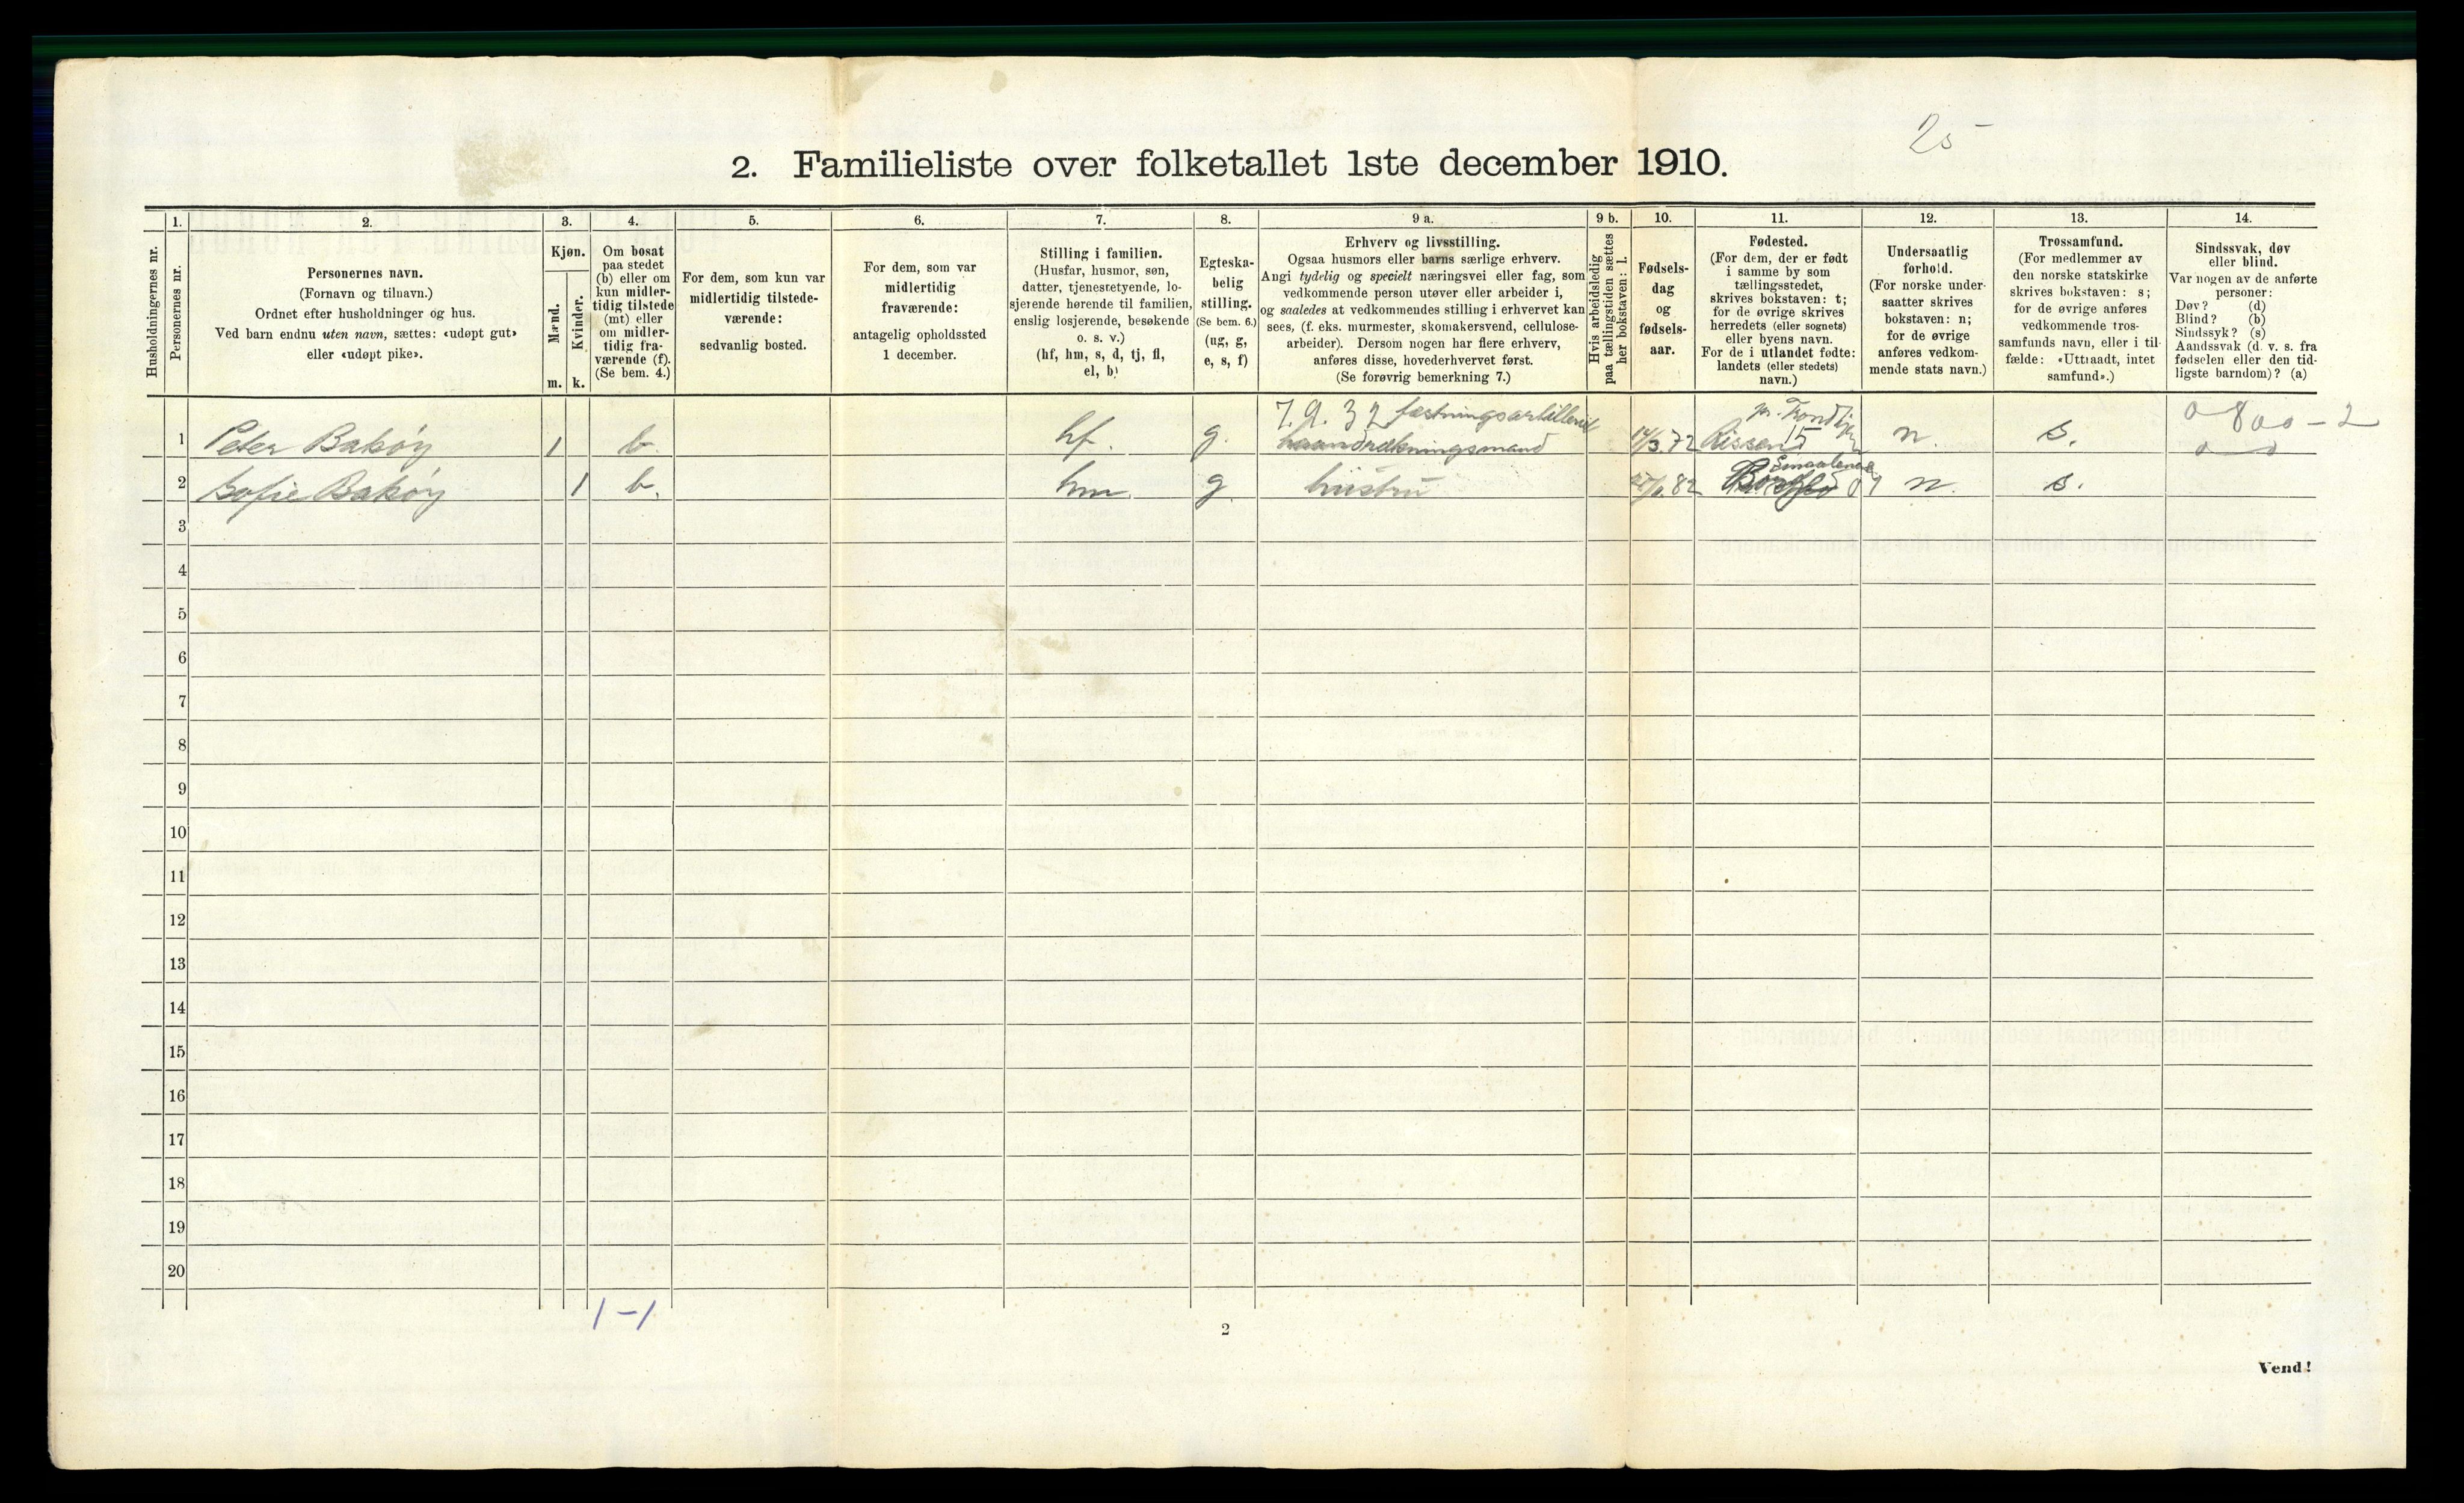 25
2. Familieliste over folketallet 1ste december 1910.
Husholdningernes nr.
1.
Personernes nr.
2.
Personernes navn.
(Fornavn og tilnavn.)
Ordnet efter husholdninger og hus.
Ved barn endnu uten navn, sættes: «udøpt gut»
eller «udøpt pike».
3.
Kjøn.
Mænd.
Kvinder.
m. k.
4.
Om bosat
paa stedet
(b) eller om
kun midler-
tidig tilstede
(mt) eller
om midler-
tidig fra-
værende (f).
(Se bem. 4.)
5.
For dem, som kun var
midlertidig tilstede-
værende:
sedvanlig bosted.
6.
For dem, som var
midlertidig
fraværende:
antagelig opholdssted
1 december.
7.
Stilling i familien.
(Husfar, husmor, søn,
datter, tjenestetyende, lo-
sjerende hørende til familien,
enslig losjerende, besøkende
o. s. v.)
(hf, hm, s, d, tj, fl,
el, b)
8.
Egteska-
belig
stilling.
(Se bem. 6.)
(ug, g,
e, s, f)
9 a.
Erhverv og livsstilling.
Ogsaa husmors eller barns særlige erhverv.
Angi tydelig og specielt næringsvei eller fag, som
vedkommende person utøver eller arbeider i,
og saaledes at vedkommendes stilling i erhvervet kan
sees, (f. eks. murmester, skomakersvend, cellulose-
arbeider). Dersom nogen har flere erhverv,
anføres disse, hovederhvervet først.
(Se forøvrig bemerkning 7.)
9 b.
Hvis arbeidsledig
paa tællingstiden sættes
her bokstaven: l.
10.
Fødsels-
dag
og
fødsels-
aar.
11.
Fødested.
(For dem, der er født
i samme by som
tællingsstedet,
skrives bokstaven: t;
for de øvrige skrives
herredets (eller sognets)
eller byens navn.
For de i utlandet fødte:
landets (eller stedets)
navn.)
12.
Undersaatlig
forhold.
(For norske under-
saatter skrives
bokstaven: n;
for de øvrige
anføres vedkom-
mende stats navn.)
13.
Trossamfund.
(For medlemmer av
den norske statskirke
skrives bokstaven: s;
for de øvrige anføres
vedkommende tros-
samfunds navn, eller i til-
fælde: «Uttraadt, intet
samfund».)
14.
Sindssvak, døv
eller blind.
Var nogen av de anførte
personer:
Døv? (d)
Blind? (b)
Sindssyk? (s)
Aandssvak (d. v. s. fra
fødselen eller den tid-
ligste barndom)? (a)
7.9.32 fæstningsartilleriet
0 800 - 2
1 Peter Bakøy 1 b. hf. g. haandrækningsmand 14/3.72 Rissen 15 n. s. 0 0
Smaalenene
2 Sofie Bakøy 1 b. hm. g. hustru 82 01 n. s.
3
4
5
6
7
8
9
10
11
12
13
14
15
16
17
18
19
20
1-1
2
Vend!